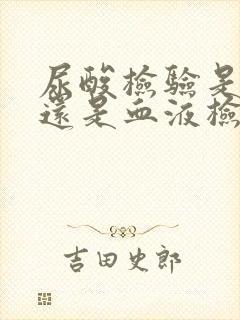 尿酸檢驗是
還是血液檢
吉田史郎